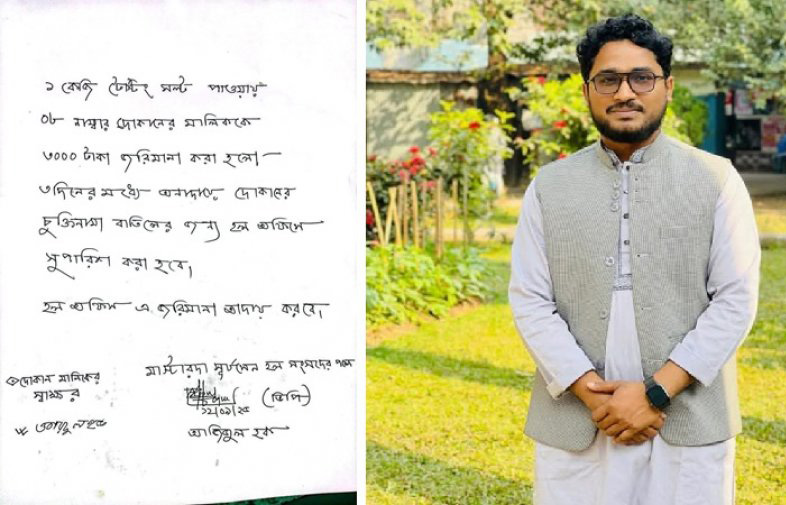 ১ কেজি টেস্টিং সল্ট পাওয়ায়
০৮ নাম্বার দোকানের মালিককে
৩০০০ টাকা জরিমানা করা হলো-
৩দিনের মধ্যে অনাদায়ে দোকানের
চুক্তিনামা বাতিলের জন্য হল অফিসে
সুপারিশ করা হবে,
হল অফিস এ জরিমানা আদায় করবে,
মাস্টারদা সূর্যসেন হল সংসদের পক্ষে
দোকান মালিকের
স্বাক্ষর
(ভিপি)
আজিজুল হক